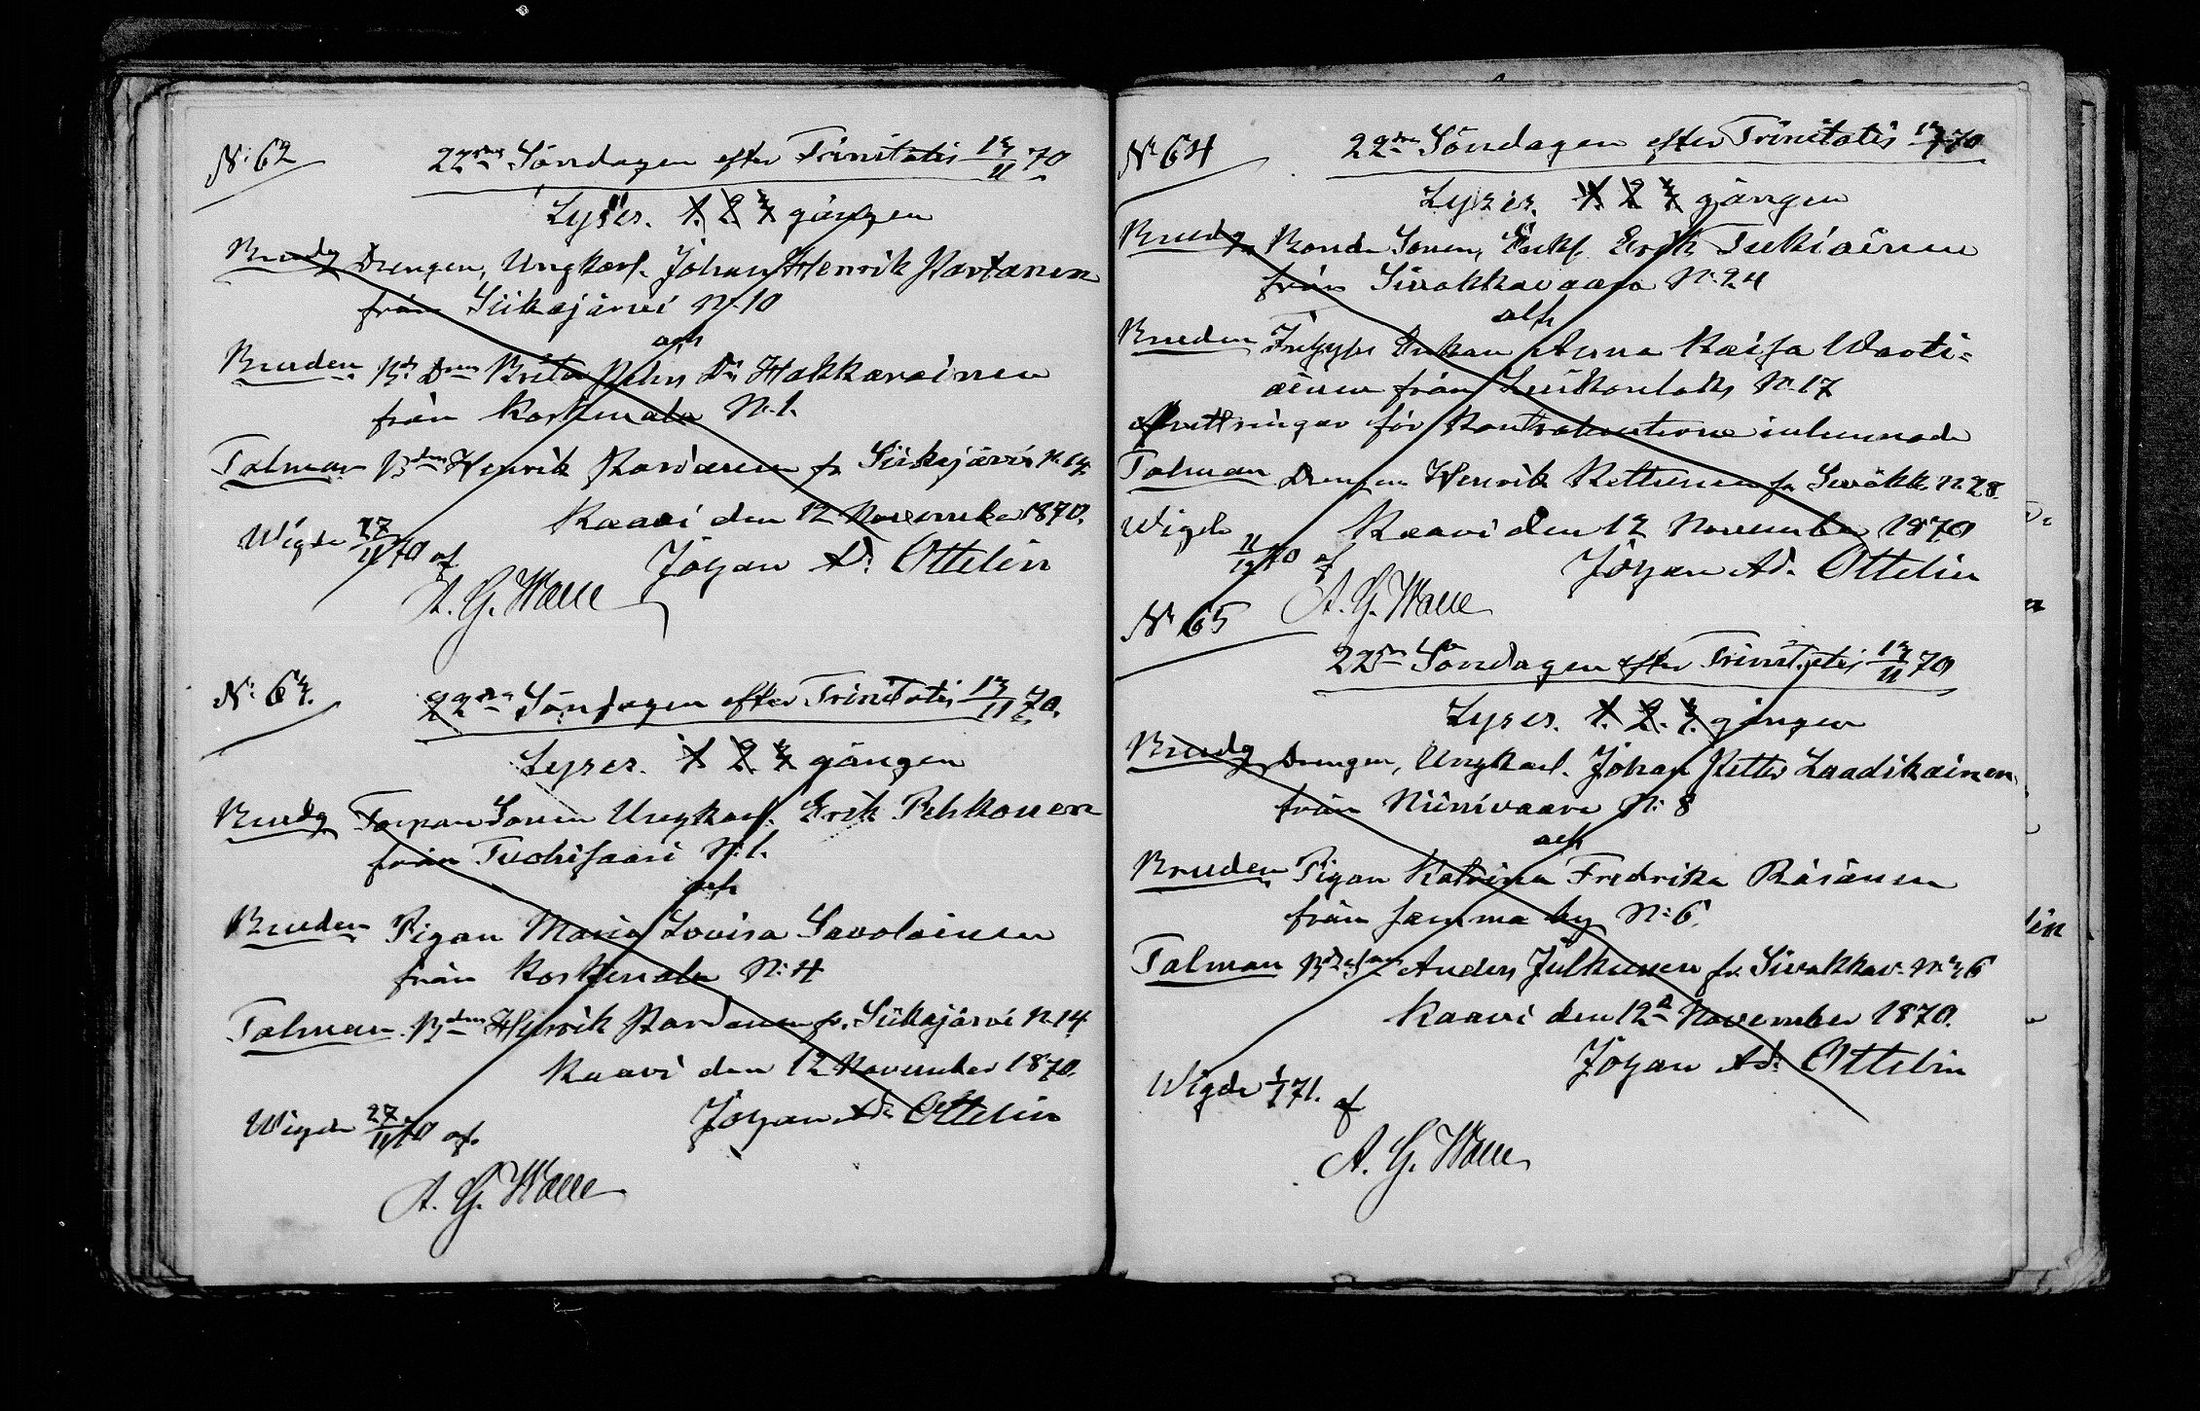 N: 62
22dra Söndagen efter Trinitatis 13/11 70
Lyses. 1. 2 3 gången
Brudg Drengen, Ungkarl. Johan Henrik Partanen
från Siikajärvi N. 10
och
Bruden Bd Drn Brita Hakkarainen
från Koskenala N. 1.
Talman Bden Henrik Partanen fr Siikajärvi N. 14
Kaavi den 12 November 1870.
Wigde 27/11 70 af
Johan Ad. Ottelin
A. G. Walle
N: 63.
22dra Söndagen efter Trinitatis 13/11 70.
Lyses. 1 2. 3 gången
Brudg Torpare Sonen Ungkarl. Erik Pehkonen
från Tuohisaari N: 1.
och
Bruden Pigan Maria Lovisa Savolainen
från Koskenala N: 4
Talman. Bden Henrik Partanen fr. Siikajärvi N. 14
Kaavi den 12 November 1870.
Wigde 27/11 70 af.
Johan Ad. Ottelin
A. G. Walle
N: 64
22dra Söndagen efter Trinitatis 13/11 70
Lyses. 1. 2 3 gången
Brudg Bonde Sonen, Enkl. Erik Tukiainen
från Sivakkavaara N. 24
och
Bruden Enkan Anna Kaisa Wasti=
ainen från Luikonlaks N. 17
för inlemnade
Talman Drengen Henrik Kettunen fr Sivakk. N. 28.
Kaavi den 12 November 1870
Wigde 11/12 70 af
Johan Ad. Ottelin
A. G. Walle
N: 65
22dra Söndagen efter Trinitatis 13/11 70
Lyses. 1. 2. 3. gången
Brudg Drengen, Ungkarl. Johan Petter Laadikainen
från Niinivaara N: 8
och
Bruden Pigan Katrina Fredrika Räsänen
från samma by N: 6.
Talman Anders Julkunen fr. Sivakkav. N. 36
Kaavi den 12 November 1870.
Johan Ad. Ottelin
Wigde 1/1 71. af
A. G. Walle